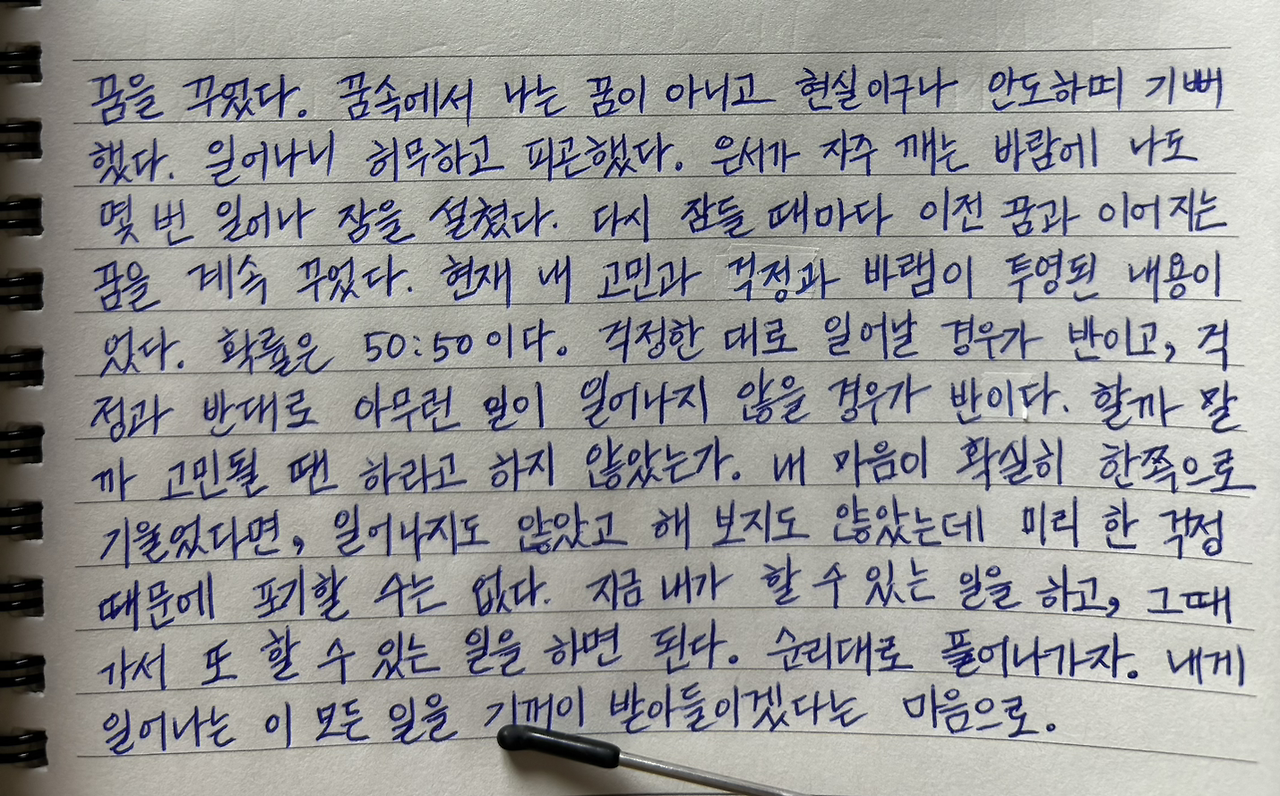 꿈을 꾸었다. 꿈속에서 나는 꿈이 아니고 현실이구나 안도하며 기뻐
했다. 일어나니 허무하고 피곤했다. 은서가 자주 깨는 바람에 나도
몇 번 일어나 잠을 설쳤다. 다시 잠들 때마다 이전 꿈과 이어지는
꿈을 계속 꾸었다. 현재 내 고민과 걱정과 바램이 투영된 내용이
었다. 확률은 50:50이다. 걱정한 대로 일어날 경우가 반이고, 걱
정과 반대로 아무런 일이 일어나지 않을 경우가 반이다. 할까 말
까 고민될 땐 하라고 하지 않았는가. 내 마음이 확실히 한쪽으로
기울었다면, 일어나지도 않았고 해 보지도 않았는데 미리 한 걱정
때문에 포기할 수는 없다. 지금 내가 할 수 있는 일을 하고, 그때
가서 또 할 수 있는 일을 하면 된다. 순리대로 풀어나가자. 내게
일어나는 이 모든 일을 기꺼이 받아들이겠다는 마음으로.